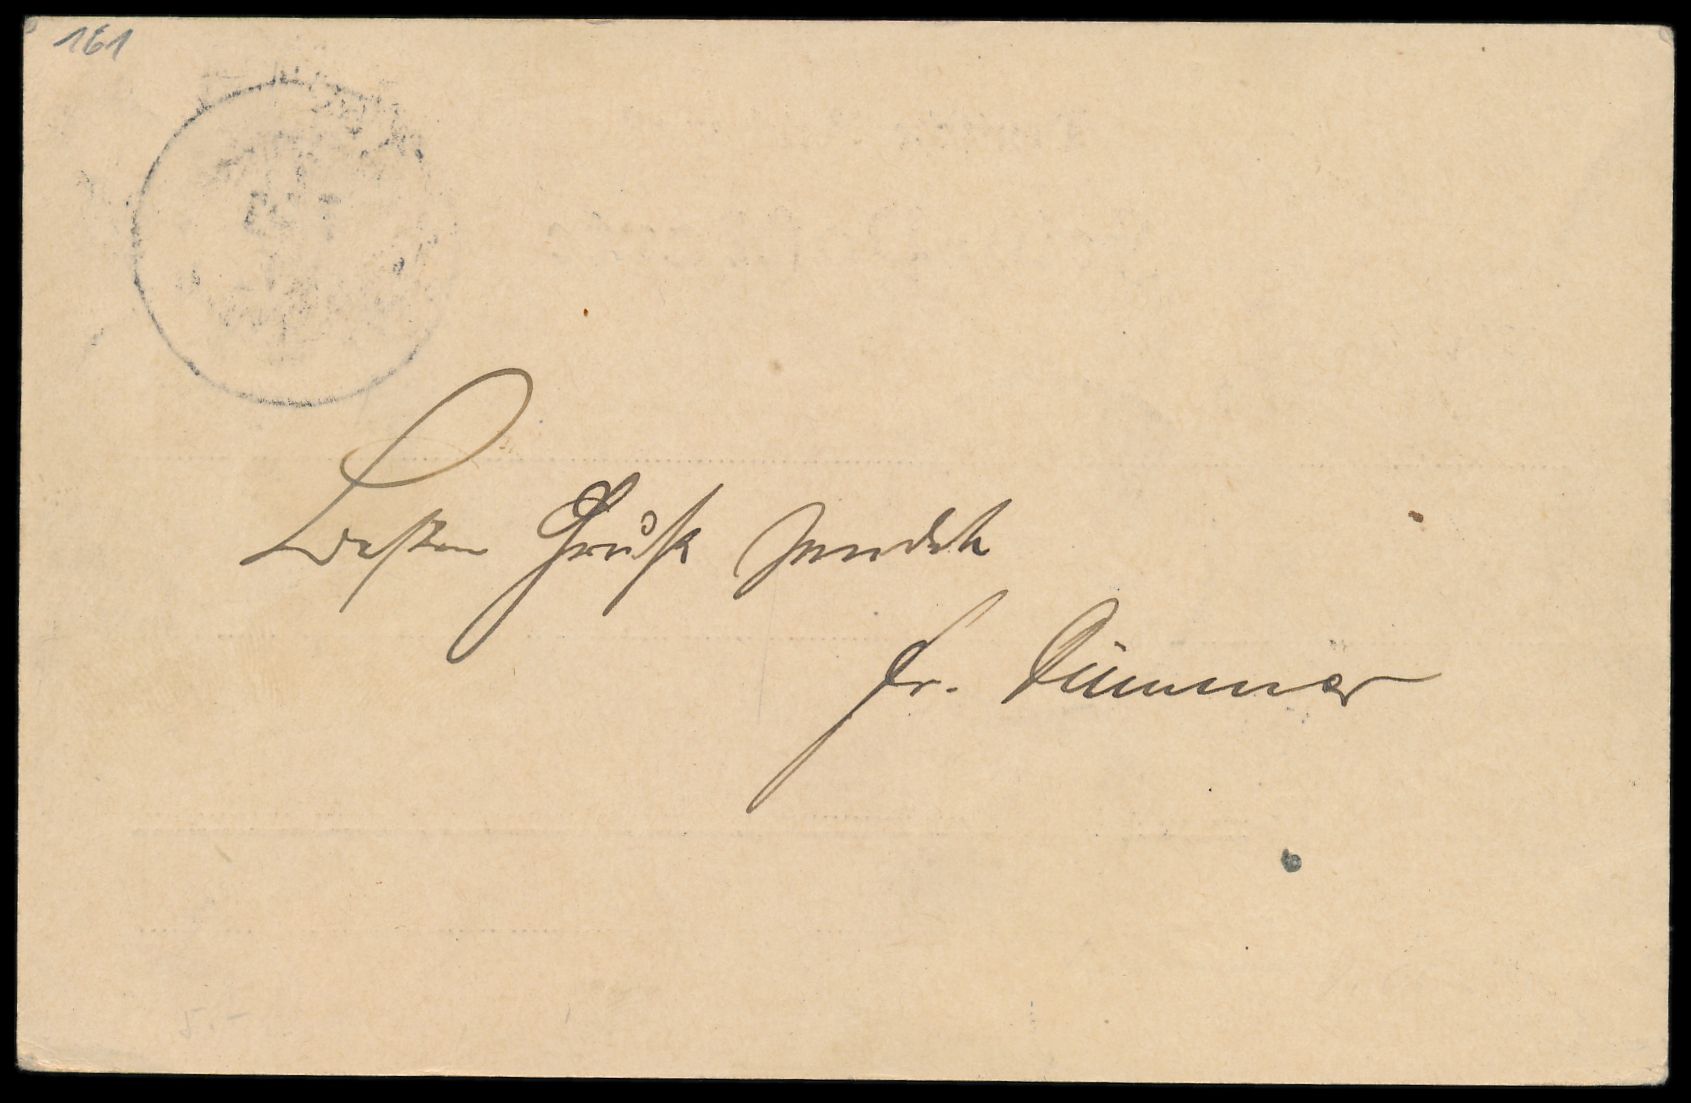 161
Besten Gruß sendet
Fr. Dümmer
5.-